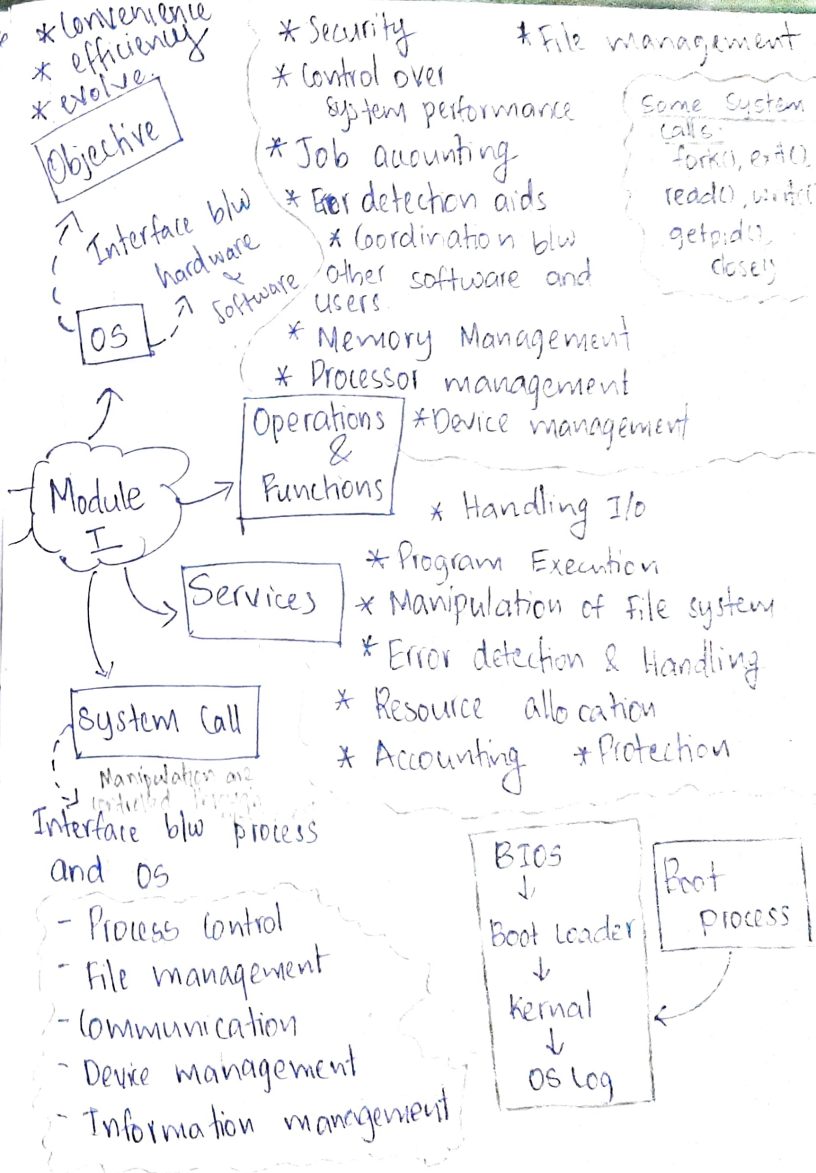 * Convenience
* efficiency
* evolve.
Objective
Interface b/w
hardware
&
software
OS
Module
I
* Security
* Control over
system performance
* Job accounting
* Error detection aids
* Coordination b/w
other software and
users
* Memory Management
* Processor management
* Device management
* File management
Some System
calls:
fork(), exit(),
read(), write()
getpid(),
close()
Operations
&
Functions
Services
* Handling I/o
* Program Execution
* Manipulation of File system
* Error detection & Handling
* Resource allocation
* Accounting * Protection
System Call
Manipulation are
Interface b/w process
and OS
- Process Control
- File management
- Communication
- Device management
- Information management
BIOS
↓
Boot Loader
↓
Kernal
↓
OS Log
Boot
process